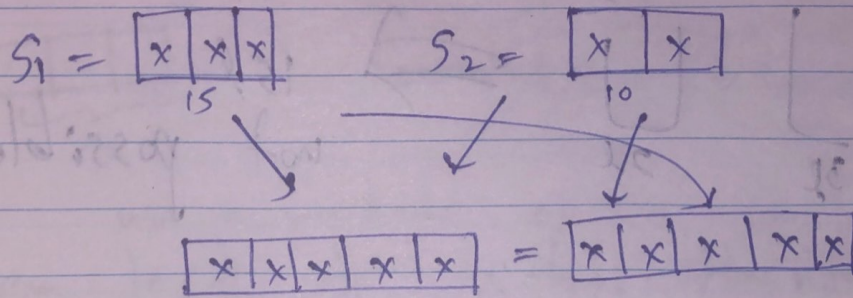 S₁ = [x|x|x] S₂ = [x|x]
15 10
[x|x|x|x|x] = [x|x|x|x|x]